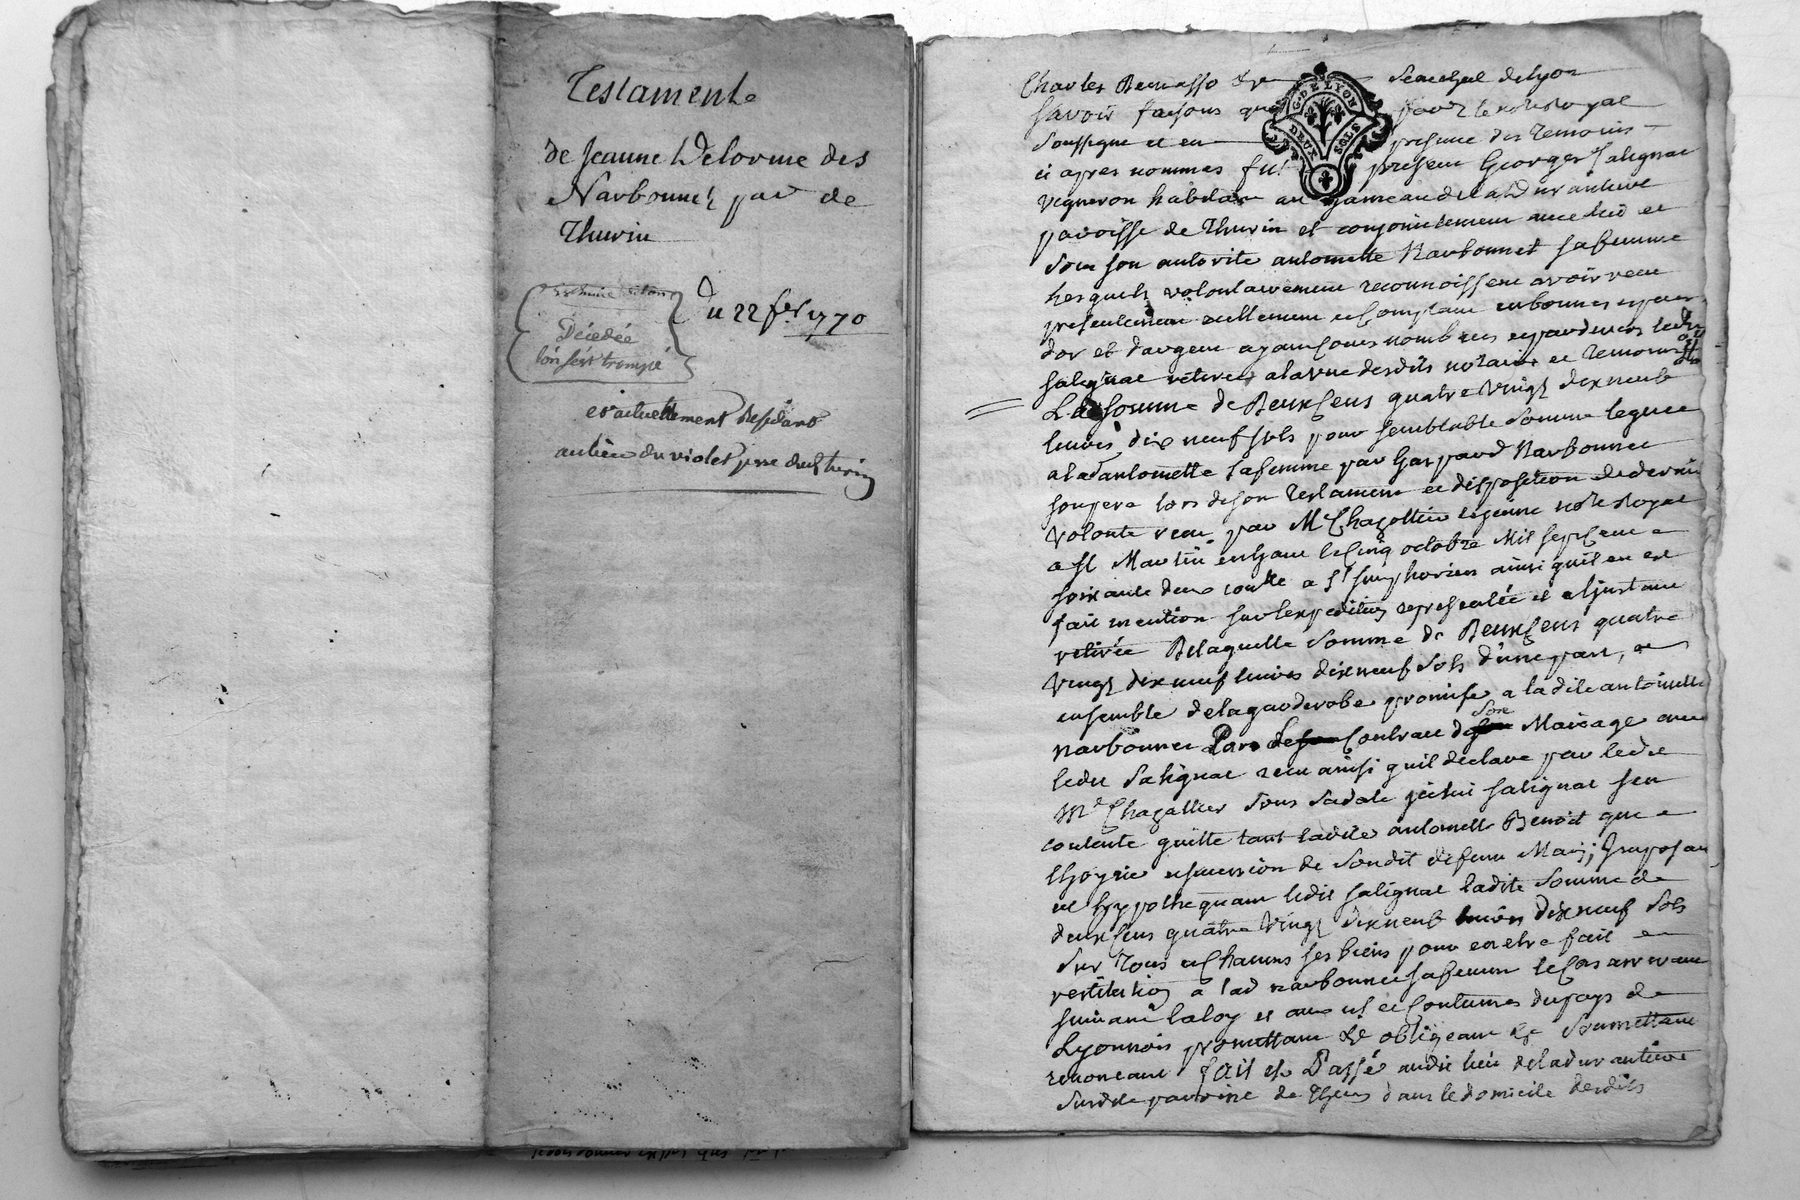 Testament
de Jeanne Delorme des
Narbonnet par de
Thurin
Du 22 fer 1770
Décédée
l'on s'est trompé
et actuellement Residant
au lieu du violet psse dud thurin
Charles Senechal de lyon
Savoir faisons que par le note Royal
Soussigne et en presence des temoins
ci apres nommes fut present George Salignat
vigneron habitant au hameau de la Durantiere
paroisse de Thurin et conjointement avec luid et
sous son autorite antoinette Narbonnet sa femme
lesquels volontairement reconnoissent avoir recu
presentement reellement et comptant en bonnes especes
dor et dargent ayant cours nombrees et par devers led
salignat retirees a la vue desdits notaire et temoins
La somme de Deux Cens quatre vingt dix neuf
livres dix neuf sols pour semblable somme leguee
a lad antoinette sa femme par Gaspard Narbonnet
son pere lors de son testament et disposition de derniere
volonte recu par Me Chazottier le jeune note Royal
a st Martin en haut le cinq octobre Mil sept cent
soixante deux controlle a st simphorien ainsi quil en est
fait mention sur lexpedition representée et a l'instant
retirée De laquelle somme de Deux Cens quatre
vingt dix neuf livres dix neuf sols d'une part, et
ensemble de la garderobe promise a la dite antoinette
son
narbonnet dans Contract de Mariage avec
ledit Salignat recu ainsi quil declare par ledit
Me Chazottier sous sa date icelui salignat sen
contente quitte tant ladite antoinette Benoit que
lhoyrie et succession de Sondit defunt Mary; Imposant
et hypothequant ledit salignat ladite somme de
deux cens quatre vingt dix neuf livres dix neuf sols
sur Tous et Chacuns ses biens pour en etre fait
restitution a lad narbonnet sa femme le cas arrivant
suivant la loy et aux us et Coutumes du pays de
Lyonnois promettant &c obligeant &c soumettant
renoncant fait et Passé audit lieu de la durantiere
susdite paroisse de Thurin dans le domicile desdits